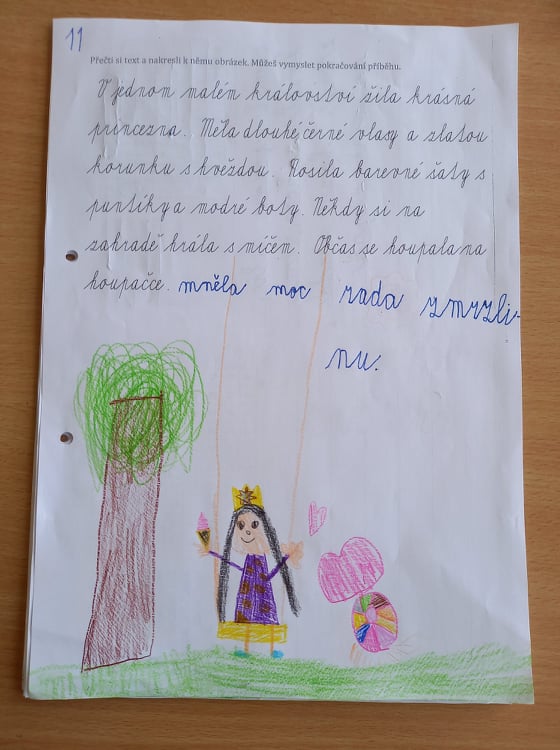 11
Přečti si text a nakresli k němu obrázek. Můžeš vymyslet pokračování příběhu.
V jednom malém království žila krásná
princezna. Měla dlouhé černé vlasy a zlatou
korunku s hvězdou. Nosila barevné šaty s
puntíky a modré boty. Někdy si na
zahradě hrála s míčem. Občas se houpala na
houpačce. mněla moc rada zmrzli-
nu.